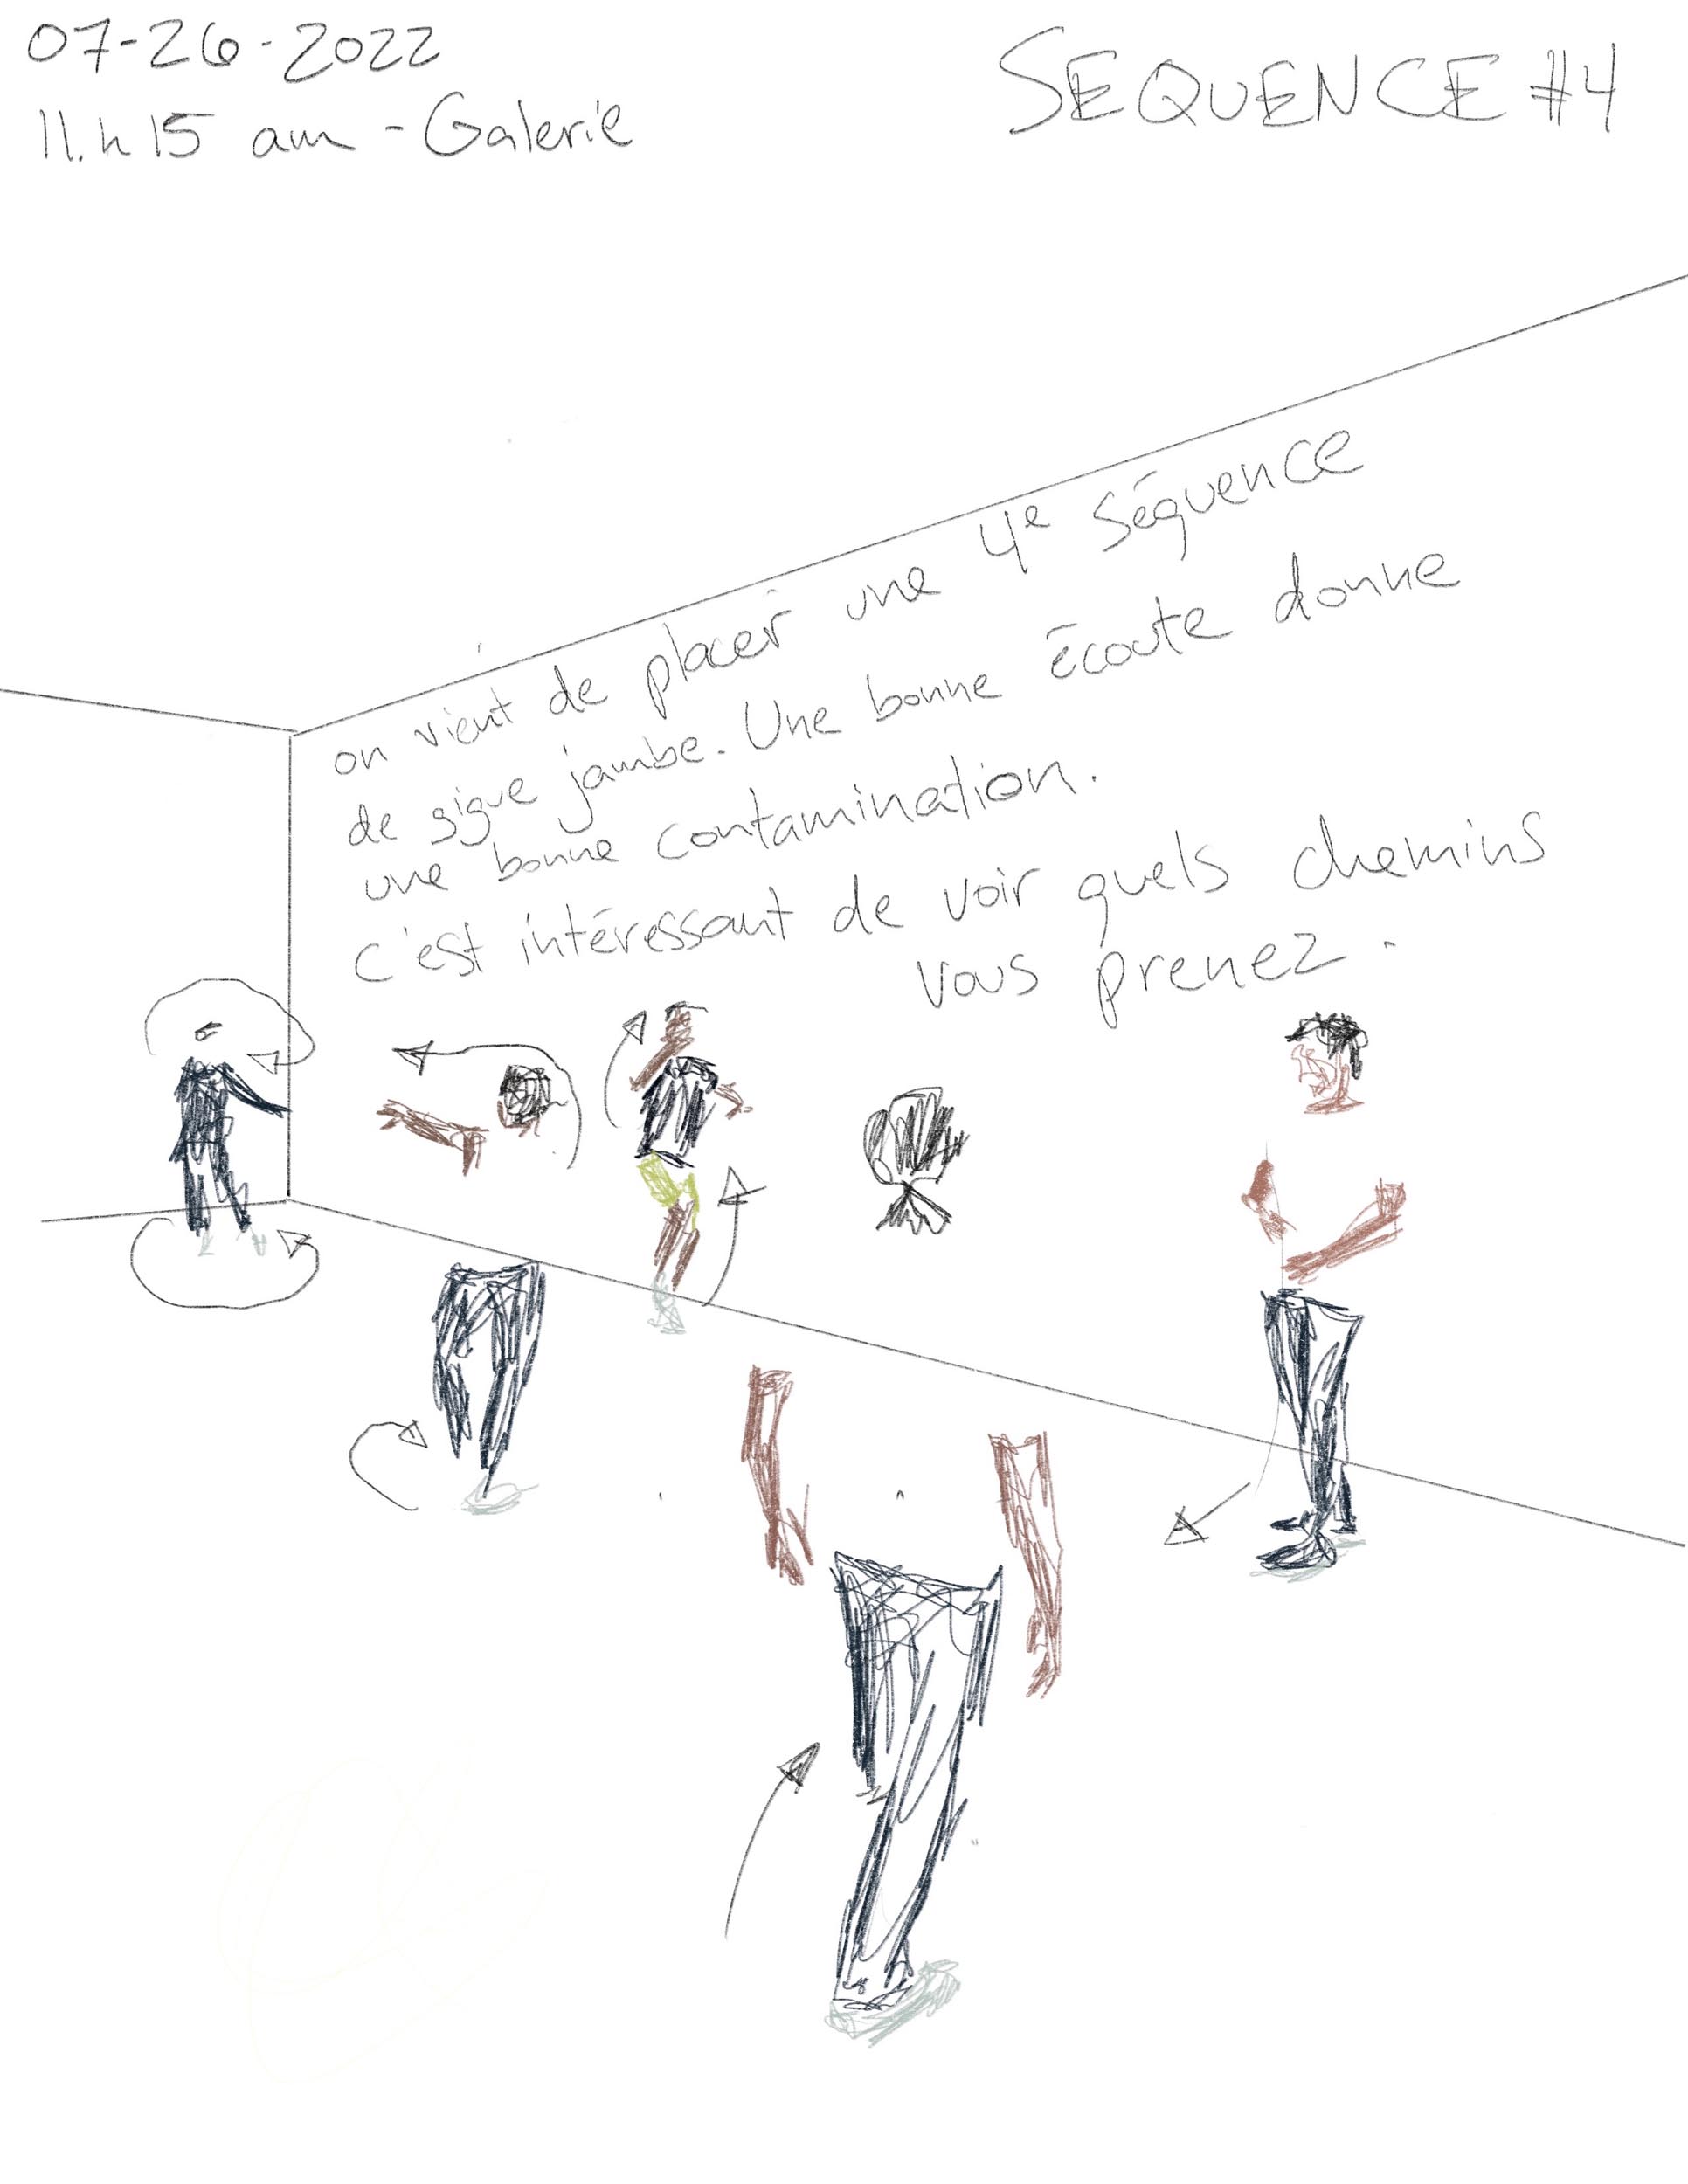 07-26-2022
11.h15 am - Galerie
SEQUENCE #4
on vient de placer une 4e séquence
de gigue jambe. Une bonne écoute donne
une bonne contamination.
c'est intéressant de voir quels chemins
vous prenez.